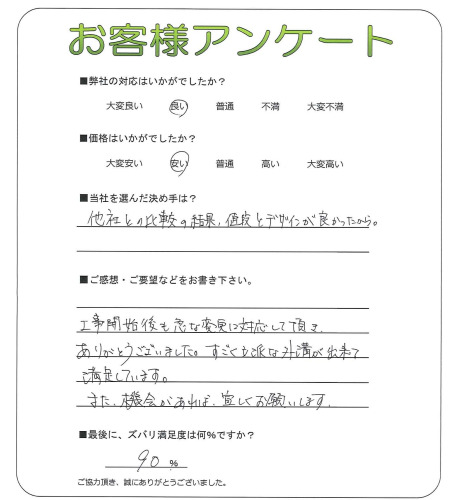 お客様アンケート
■弊社の対応はいかがでしたか？
大変良い 良い 普通 不満 大変不満
■価格はいかがでしたか？
大変安い 安い 普通 高い 大変高い
■当社を選んだ決め手は？
他社との比較の結果、値段とデザインが良かったから。
■ご感想・ご要望などをお書き下さい。
工事開始後も急な変更に対応して頂き、
ありがとうございました。すごく立派な外溝が出来て
満足しています。
また、機会があれば、宜しくお願いします。
■最後に、ズバリ満足度は何％ですか？
90 ％
ご協力頂き、誠にありがとうございました。